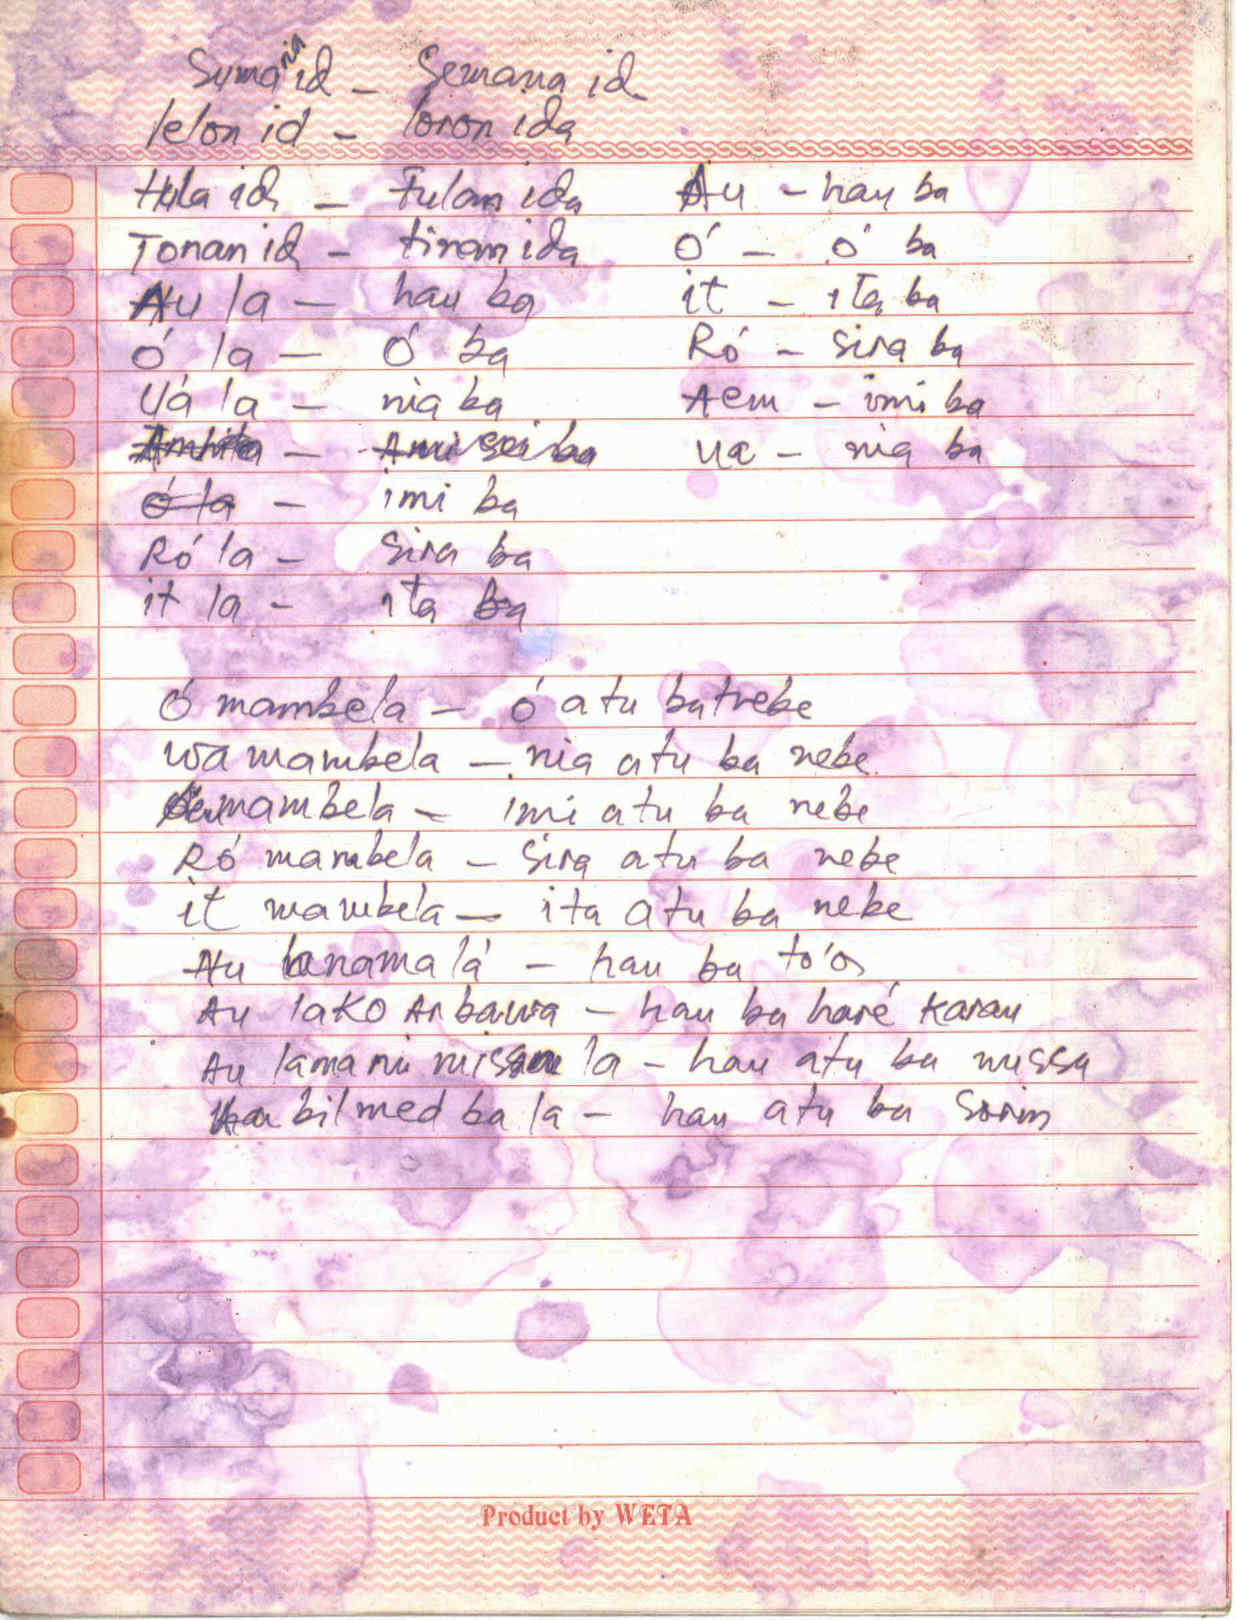 Sumania id - Semana id
lelon id - loron ida
Hula id - Fulan ida
Tonan id - tinan ida
Au la - hau ba
Ó la - Ó ba
Uá la - nia ba
Ami sei ba
Ó la - imi ba
Ró la - Sira ba
it la - ita ba
Au - hau ba
Ó - ó ba
it - ita ba
Ró - Sira ba
Aem - imi ba
Ua - nia ba
Ó mambela - ó atu ba nebe
wa mambela - nia atu ba nebe
mambela - imi atu ba nebe
Ró mambela - Sira atu ba nebe
it mambela - ita atu ba nebe
Au lanama lá - hau ba to'os
Au lako Arbawa - hau ba haré Karau
Au lamani missa la - hau atu ba missa
bil med ba la - hau atu ba Sorin
Product by WETA